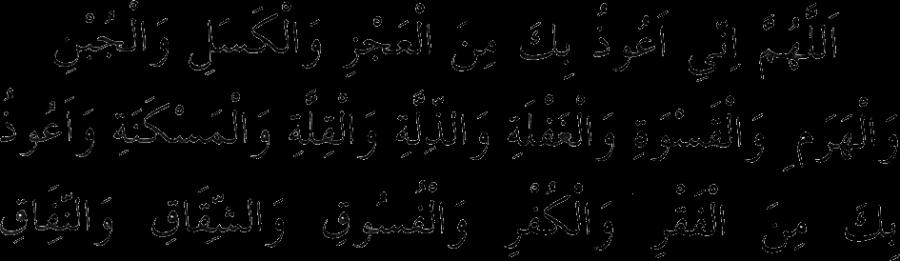 اَللَّهُمَّ اِنِّي اَعُوذُ بِكَ مِنَ الْعَجْزِ وَالْكَسَلِ وَالْجُبْنِ
وَالْهَرَمِ وَالْقَسْوَةِ وَالْغَفْلَةِ وَالذِّلَّةِ وَالْقِلَّةِ وَالْمَسْكَنَةِ وَاَعُوذُ
بِكَ مِنَ الْفَقْرِ وَالْكُفْرِ وَالْفُسُوقِ وَالشِّقَاقِ وَالنِّفَاقِ